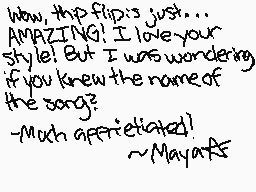 Wow, this flip is just...
AMAZING! I love your
style! But I was wondering
if you knew the name of
the song?
-Much apprietiated!
~Maya☆